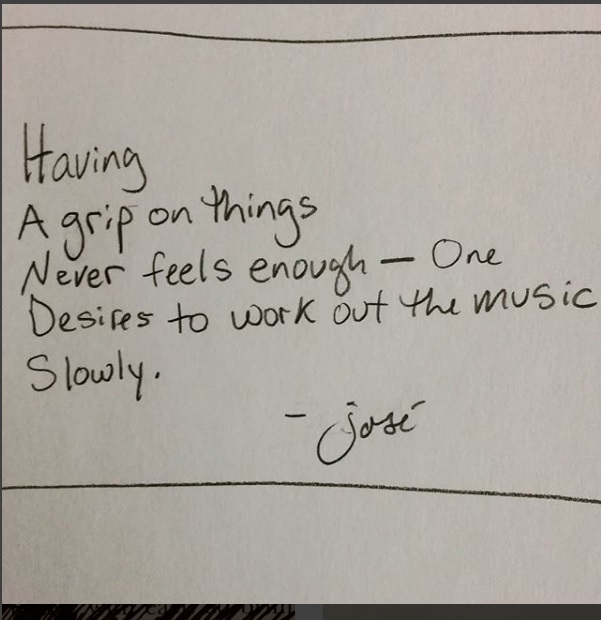 Having
A grip on things
Never feels enough — One
Desires to work out the music
Slowly.
- josé